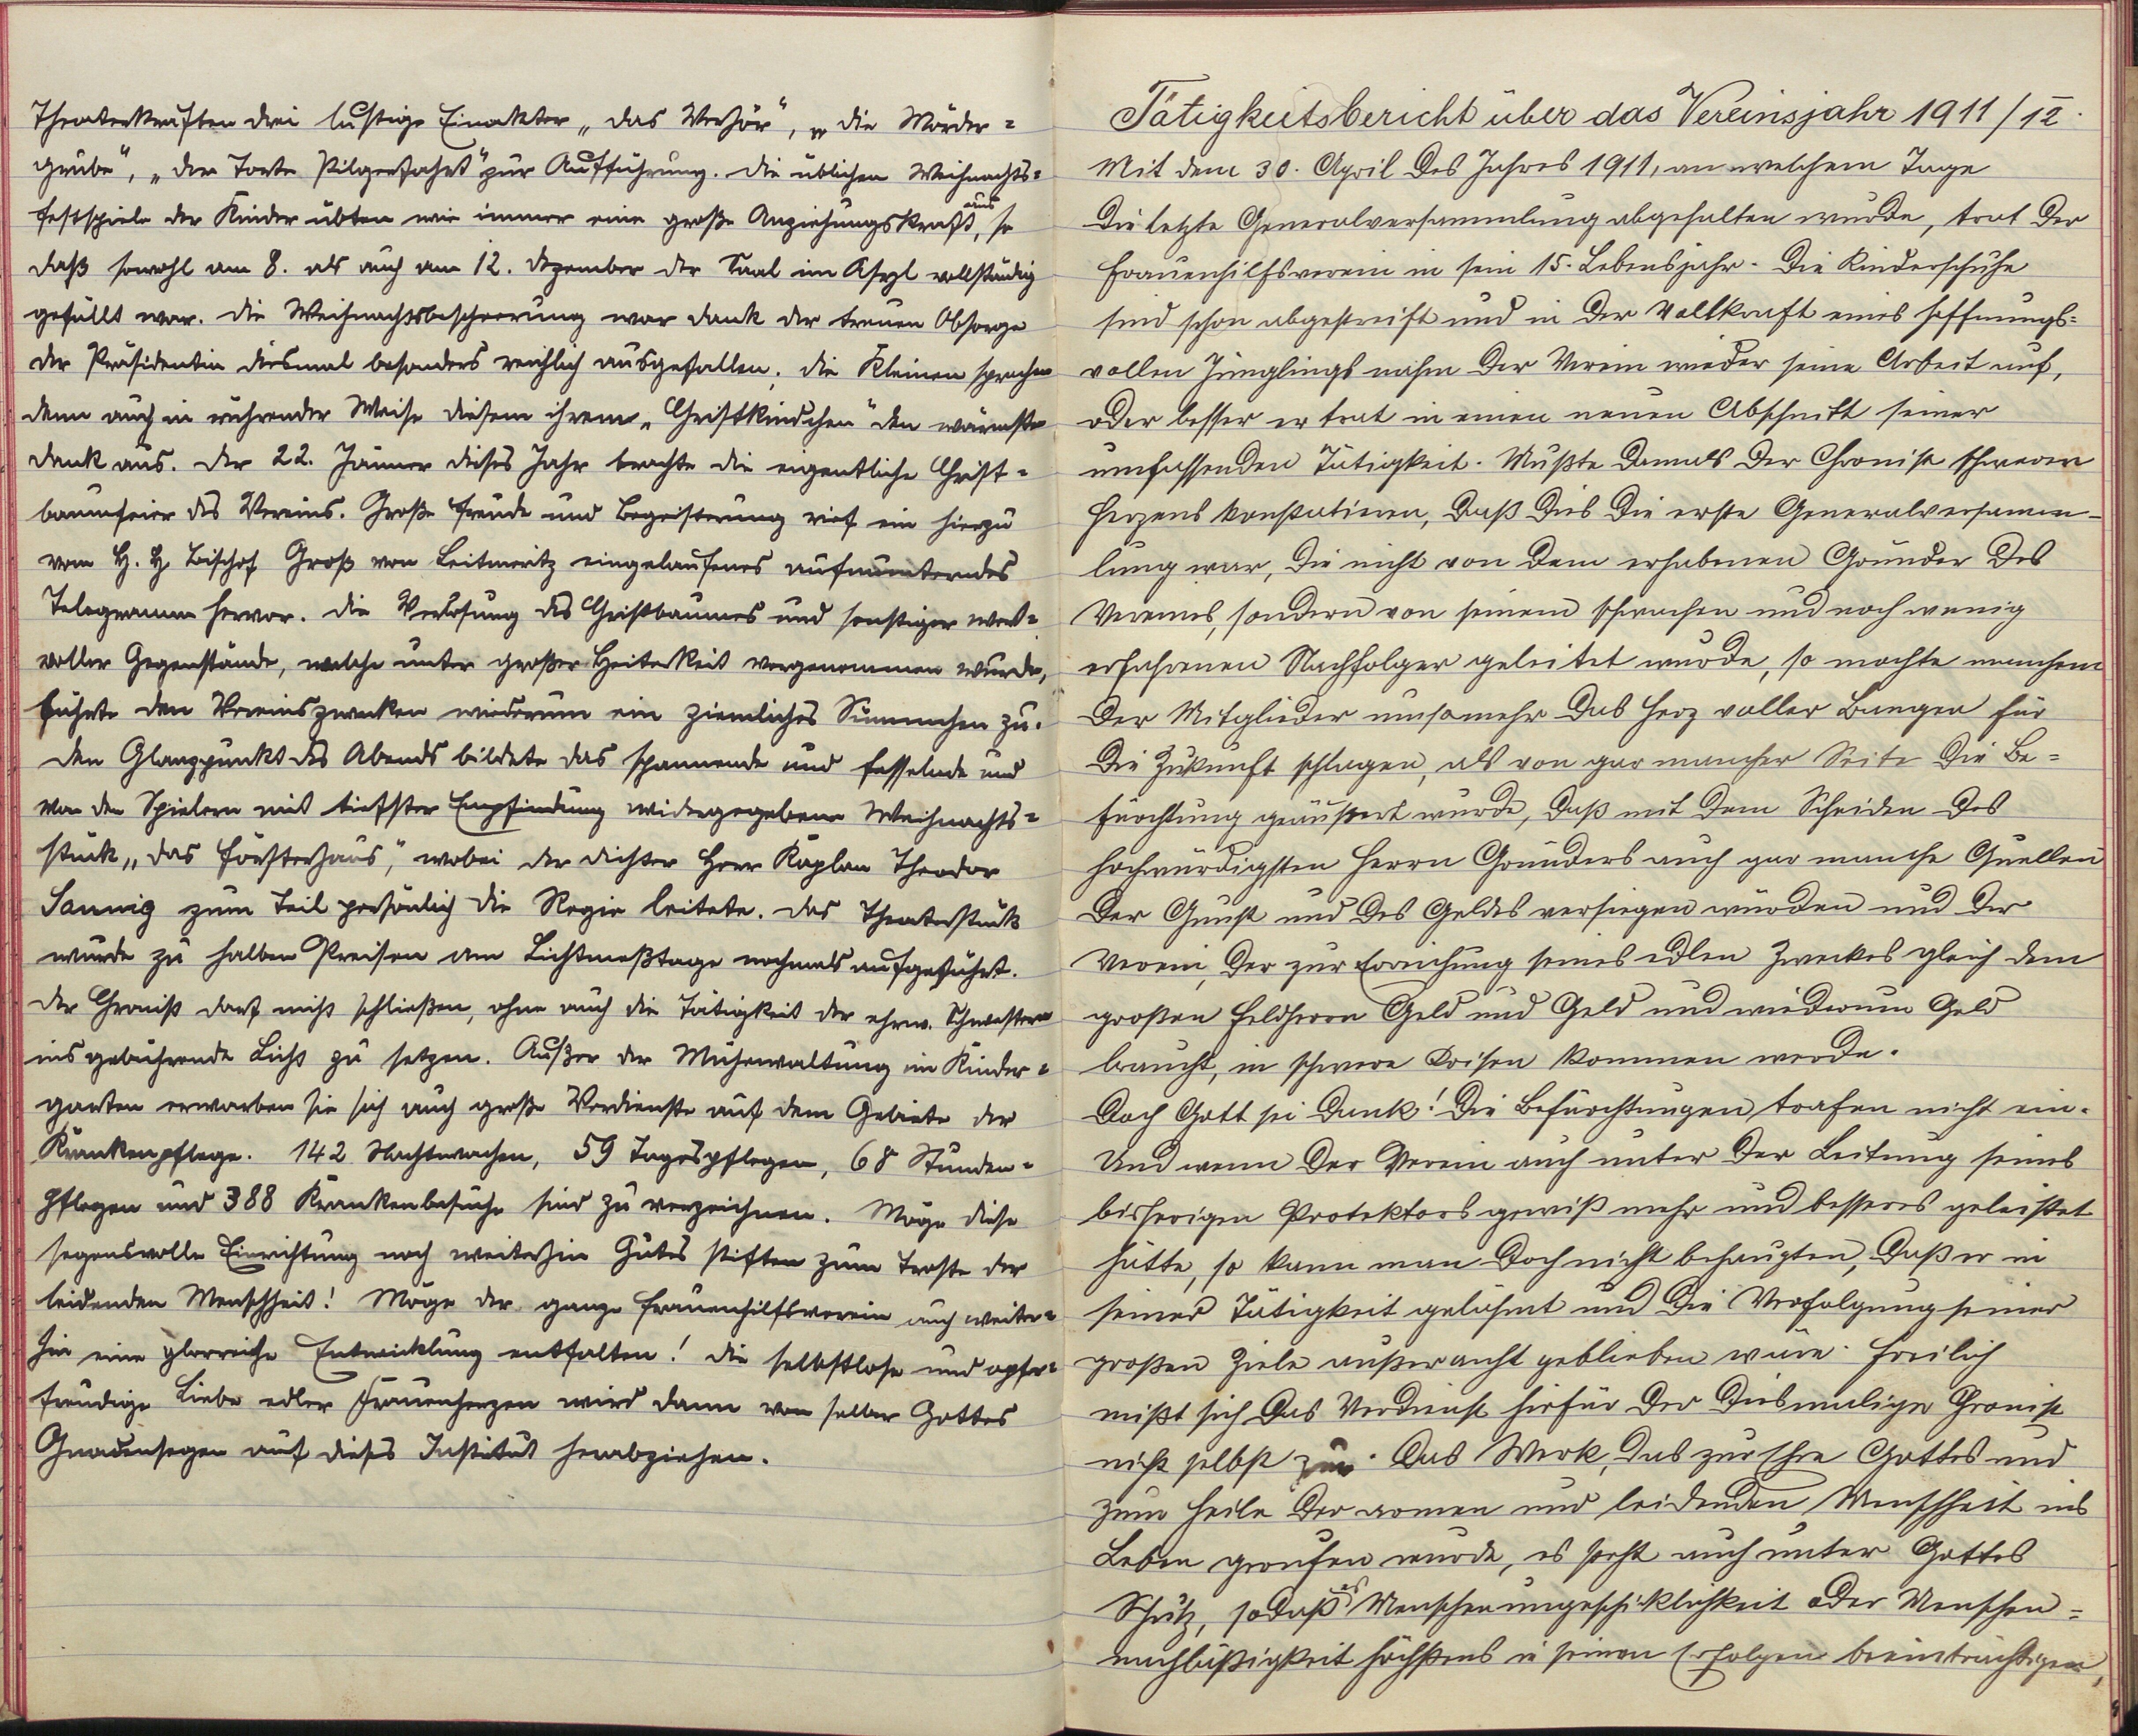 Theaterkräften drei lustige Einakter „Das Verhör", „Die Mörder=
grube", „Der Tante Pilgerfahrt" zur Aufführung. Die üblichen Weihnachts=
festspiele der Kinder übten wie immer eine große Anziehungskraft aus, so
daß sowohl am 8. als auch am 12. Dezember der Saal im Asyl vollständig
gefüllt war. Die Weihnachtsbescheerung war dank der treuen Obsorge
der Präsidentin diesmal besonders reichlich ausgefallen. Die Kleinen sprachen
denn auch in rührender Weise diesem ihrem „Christkindchen" den wärmsten
Dank aus. Der 22. Jänner dieses Jahr brachte die eigentliche Christ=
baumfeier des Vereins. Große Freude und Begeisterung rief ein hierzu
vom H. H. Bischof Groß von Leitmeritz eingelaufenes aufmunterndes
Telegramm hervor. Die Verlosung des Christbaumes und sonstiger wert=
voller Gegenstände, welche unter großer Heiterkeit vorgenommen wurde,
führte den Vereinszwecken wiederum ein ziemliches Sümmchen zu.
Den Glanzpunkt des Abends bildete das spannende und fesselnde und
von den Spielern mit tiefster Empfindung widergegebene Weihnachts=
stück „Das Försterhaus", wobei der Dichter Herr Kaplan Theodor
Sannig zum Teil persönlich die Regie leitete. Das Theaterstück
wurde zu halben Preisen am Lichtmeßtage nochmals aufgeführt.
Der Chronist darf nicht schließen, ohne auch die Tätigkeit der ehrw. Schwestern
ins gebührende Licht zu setzen. Außer der Mühewaltung im Kinder=
garten erwarben sie sich auch große Verdienste auf dem Gebiete der
Krankenpflege. 142 Nachtwachen, 59 Tagespflegen, 68 Stunden=
pflegen und 388 Krankenbesuche sind zu verzeichnen. Möge diese
segensvolle Einrichtung noch weiterhin Gutes stiften zum Troste der
leidenden Menschheit! Möge der ganze Frauenhilfsverein auch weiter=
hin eine glorreiche Entwicklung entfalten! Die selbstlose und opfer=
freudige Liebe edler Frauenherzen wird dann von selber Gottes
Gnadensegen auf dieses Institut herabziehen.
Tätigkeitsbericht über das Vereinsjahr 1911/12.
Mit dem 30. April des Jahres 1911, an welchem Tage
die letzte Generalversammlung abgehalten wurde, trat der
Frauenhilfsverein in sein 15. Lebensjahr. Die Kinderschuhe
sind schon abgestreift und in der Vollkraft eines hoffnungs=
vollen Jünglings nahm der Verein wieder seine Arbeit auf,
oder besser er trat in einen neuen Abschnitt seiner
umfassenden Tätigkeit. Mußte damals der Chronist schweren
Herzens konstatieren, daß dies die erste Generalversamm-
lung war, die nicht von dem erhabenen Gründer des
Vereines, sondern von seinem schwachen und noch wenig
erfahrenen Nachfolger geleitet wurde, so mochte manchem
der Mitglieder umsomehr das Herz voller Bangen für
die Zukunft schlagen, als von gar mancher Seite die Be=
fürchtung geäußert wurde, daß mit dem Scheiden des
hochwürdigsten Herrn Gründers auch gar manche Quellen
der Gunst und des Geldes versiegen würden und der
Verein, der zur Erreichung seines edlen Zweckes gleich dem
großen Feldherrn Geld und Geld und wiederum Geld
braucht, in schwere Krisen kommen werde.
Doch Gott sei Dank! Die Befürchtungen trafen nicht ein.
Und wenn der Verein auch unter der Leitung seines
bisherigen Protektors gewiß mehr und besseres geleistet
hätte, so kann man doch nicht behaupten, daß er in
seiner Tätigkeit gelähmt und die Verfolgung seiner
großen Ziele außeracht geblieben wäre. Freilich
mißt sich das Verdienst hiefür der diesmalige Chronist
nicht selbst zu. Das Werk, das zur Ehre Gottes und
zum Heile der armen und leidenden Menschheit ins
Leben gerufen wurde, es steht auch unter Gottes
Schutz, sodaß es Menschenungeschicklichkeit oder Menschen=
nachläßigkeit höchstens in seinen Erfolgen beeinträchtigen,